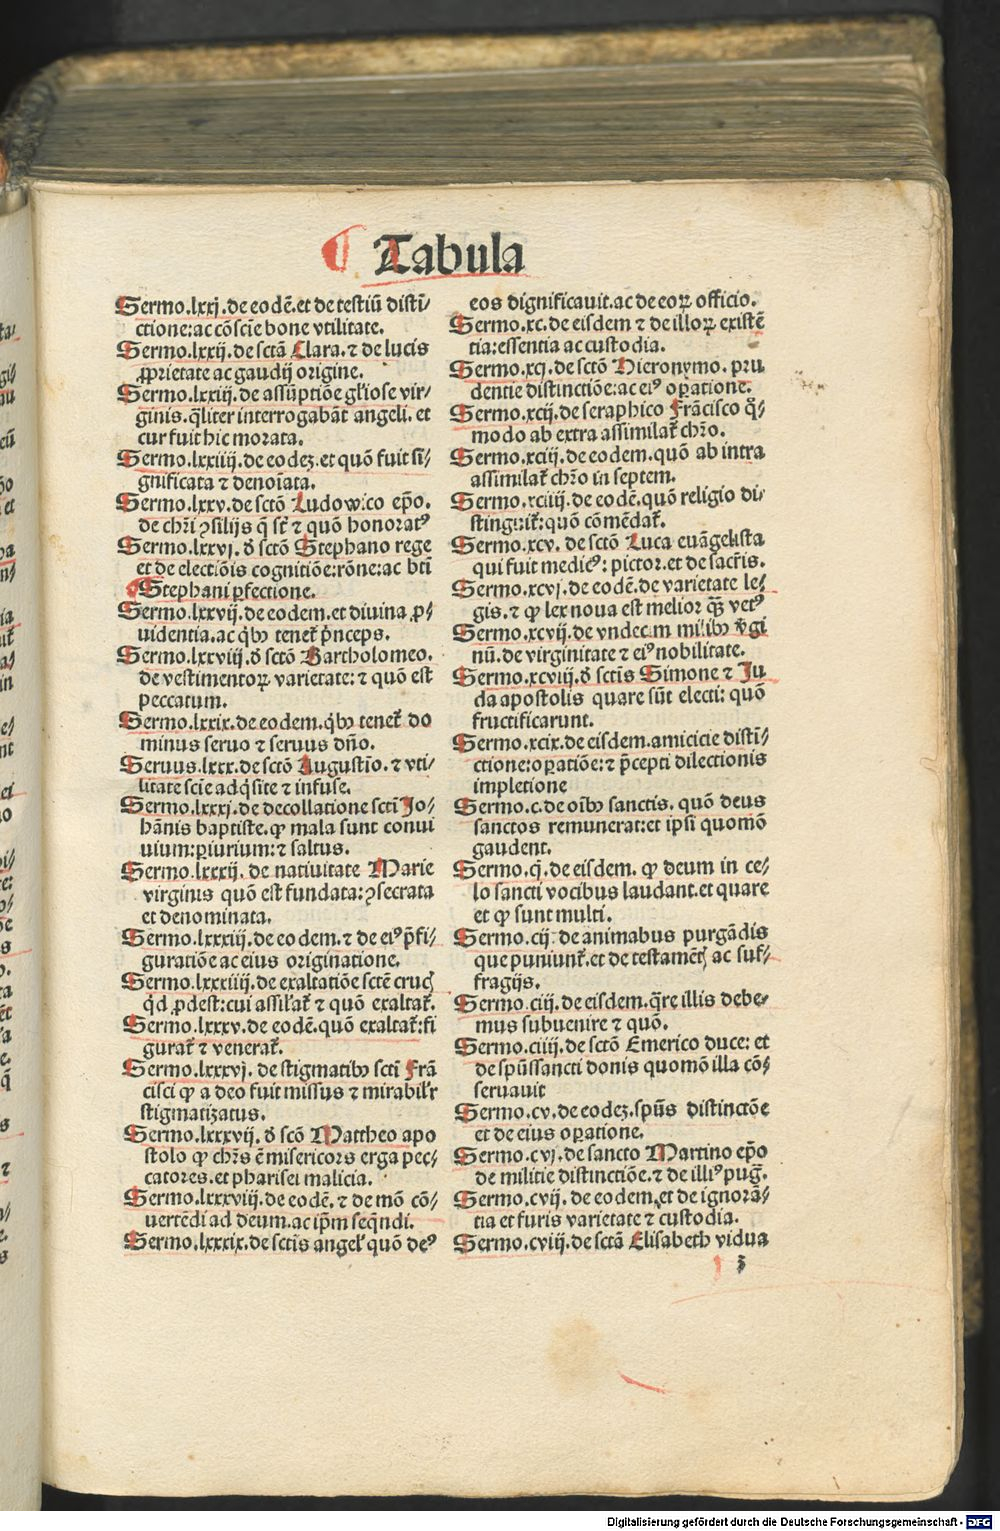 Tabula
Sermo.lxxj.de eodē.et de testiū distī/
ctione:ac cōscīe bone vtilitate.
Sermo.lxxij.de sctā Clara.⁊ de lucis
ꝓprietate ac gaudij origine.
Sermo.lxxiij.de assūptiōe gl'iose vir/
ginis.q̄liter interrogabāt angeli.et
cur fuit hic morata.
Sermo.lxxiiij.de eodeꝫ.et quō fuit sī/
gnificata ⁊ denoīata.
Sermo.lxxv.de sctō Ludowico ep̄o.
de chr̄i ꝯsilijs q̄ sr̄t ⁊ quō honoratꝰ
Sermo.lxxvj.ꝺ̄ sctō Stephano rege
et de electiōis cognitiōe:rōne:ac btī
Stephani ꝑfectione.
Sermo.lxxvij.de eodem.et diuina ꝓ/
uidentia.ac q̄bꝫ tenet᷑ p̄nceps.
Sermo.lxxviij.ꝺ̄ sctō Bartholomeo.
de vestimentoꝝ varietate:⁊ quō est
peccatum.
Sermo.lxxix.de eodem.q̄bꝫ tenet᷑ do
minus seruo ⁊ seruus dn̄o.
Seruus.lxxx.de sctō Augustīo.⁊ vti/
litate scīe adq̄site ⁊ infuse.
Sermo.lxxxj.de decollatione sctī Jo/
hānis baptiste.ꝙ mala sunt conui
uium:ꝑiurium:⁊ saltus.
Sermo.lxxxij. de natiuitate Marie
virginis quō est fundata:ꝯsecrata
et denominata.
Sermo.lxxxiij.de eodem.⁊ de eiꝰ p̄fi/
guratiōe ac eius originatione.
Sermo.lxxxiiij.de exaltatiōe sctē crucꝭ
q̇d ꝓdest:cui assil'at᷑ ⁊ quō exaltat᷑.
Sermo.lxxxv.de eodē.quō exaltat᷑:fi
gurat᷑ ⁊ venerat᷑.
Sermo.lxxxvj.de stigmatibꝫ sctī Frā
cisci ꝙ a deo fuit missus ⁊ mirabil'r
stigmatizatus.
Sermo.lxxxvij.ꝺ̄ scō Mattheo apo
stolo ꝙ chr̄s ē misericors erga pec/
catores.et pharisei malicia.
Sermo.lxxxviij.de eodē.⁊ de mō cō/
uertēdi ad deum.ac ip̄m seq̄ndi.
Sermo.lxxxix.de sctīs angel' quō deꝰ
eos dignificauit.ac de eoꝝ officio.
Sermo.xc.de eisdem ⁊ de illoꝝ existē
tia:essentia ac custodia.
Sermo.xcj.de sctō Hieronymo. pru
dentie distinctiōe:ac eiꝰ oꝑatione.
Sermo.xcij.de seraphico Frācisco q̊/
modo ab extra assimilat᷑ chr̄o.
Sermo.xciij.de eodem.quō ab intra
assimilat᷑ chr̄o in septem.
Sermo.xciiij.de eodē.quō religio di/
stinguit᷑:quō cōmēdat᷑.
Sermo.xcv. de sctō Luca euāgelista
qui fuit medicꝰ: pictor.et de sacr̄is.
Sermo.xcvj.de eodē.de varietate le/
gis.⁊ ꝙ lex noua est melior q̄ꝫ vetꝰ
Sermo.xcvij.de vndecim milibꝫ v̄gi
nū.de virginitate ⁊ eiꝰ nobilitate.
Sermo.xcviij.ꝺ̄ sctīs Simone ⁊ Ju
da apostolis quare sūt electi: quō
fructificarunt.
Sermo.xcix.de eisdem.amicicie distī/
ctione:oꝑatiōe:⁊ p̄cepti dilectionis
impletione
Sermo.c.de oībꝫ sanctis. quō deus
sanctos remunerat:et ipsi quomō
gaudent.
Sermo.cj.de eisdem. ꝙ deum in ce/
lo sancti vocibus laudant.et quare
et ꝙ sunt multi.
Sermo.cij.de animabus purgādis
que puniunt᷑.et de testamētꝭ ac suf/
fragijs.
Sermo.ciij.de eisdem.q̄re illis debe/
mus subuenire ⁊ quō.
Sermo.ciiij.de sctō Emerico duce: et
de spūssancti donis quomō illa cō/
seruauit
Sermo.cv.de eodeꝫ.spūs distinctōe
et de eius oꝑatione.
Sermo.cvj.de sancto Martino ep̄o
de militie distinctiōe.⁊ de illiꝰ puḡ.
Sermo.cvij.de eodem.et de ignorā/
tia et furis varietate ⁊ custodia.
Sermo.cviij.de sctā Elisabeth vidua
3
Digitalisierung gefördert durch die Deutsche Forschungsgemeinschaft - DFG